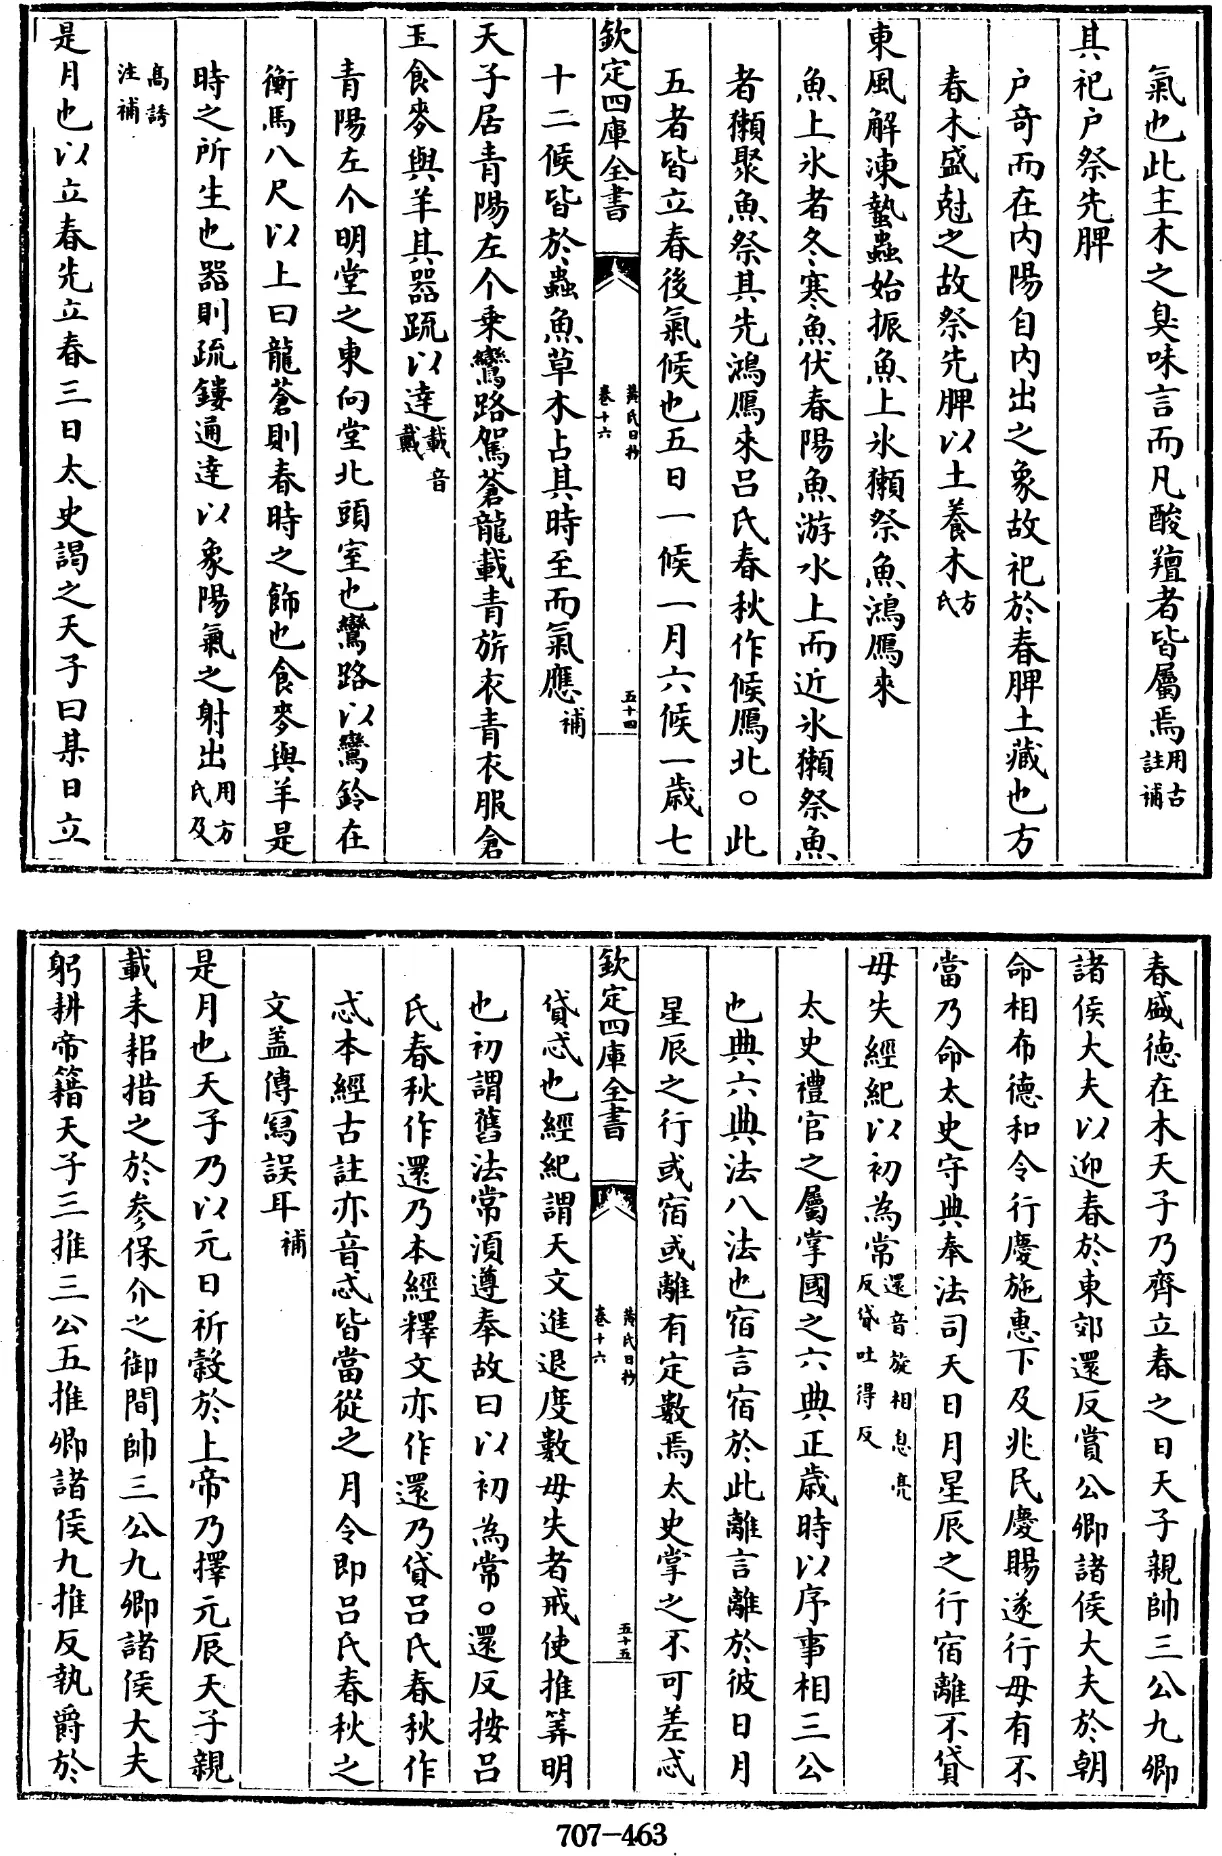 氣也此主木之臭味言而凡酸羶者皆屬焉用古註補
其祀户祭先脾
户竒而在内陽自内出之象故祀於春脾土藏也方
春木盛尅之故祭先脾以土養木方氏
東風解凍蟄蟲始振魚上氷獺祭魚鴻鴈來
魚上氷者冬寒魚伏春陽魚游水上而近氷獺祭魚
者獺聚魚祭其先鴻鴈來吕氏春秋作候鴈北○此
五者皆立春後氣候也五日一候一月六候一歳七
欽定四庫全書
黄氏日抄
卷十六
五十四
十二候皆於蟲魚草木占其時至而氣應補
天子居青陽左个乗鸞路駕蒼龍載青旂衣青衣服倉
玉食麥與羊其器疏以達載音戴
青陽左个明堂之東向堂北頭室也鸞路以鸞鈴在
衡馬八尺以上曰龍蒼則春時之飾也食麥與羊是
時之所生也器則疏鏤通達以象陽氣之射出用方氏及
髙誘注補
是月也以立春先立春三日太史謁之天子曰某日立
春盛徳在木天子乃齊立春之日天子親帥三公九卿
諸侯大夫以迎春於東郊還反賞公卿諸侯大夫於朝
命相布德和令行慶施惠下及兆民慶賜遂行毋有不
當乃命太史守典奉法司天日月星辰之行宿離不貸
毋失經紀以初為常還音旋相息亮反貸吐得反
太史禮官之屬掌國之六典正歳時以序事相三公
也典六典法八法也宿言宿於此離言離於彼日月
星辰之行或宿或離有定數焉太史掌之不可差忒
欽定四庫全書
黄氏日抄
卷十六
五十五
貸忒也經紀謂天文進退度數毋失者戒使推筭明
也初謂舊法常湏遵奉故曰以初為常○還反按吕
氏春秋作還乃本經釋文亦作還乃貸吕氏春秋作
忒本經古註亦音忒皆當從之月令即吕氏春秋之
文盖傳冩誤耳補
是月也天子乃以元日祈穀於上帝乃擇元辰天子親
載耒耜措之於参保介之御間帥三公九卿諸侯大夫
躬耕帝籍天子三推三公五推卿諸侯九推反執爵於
707-463